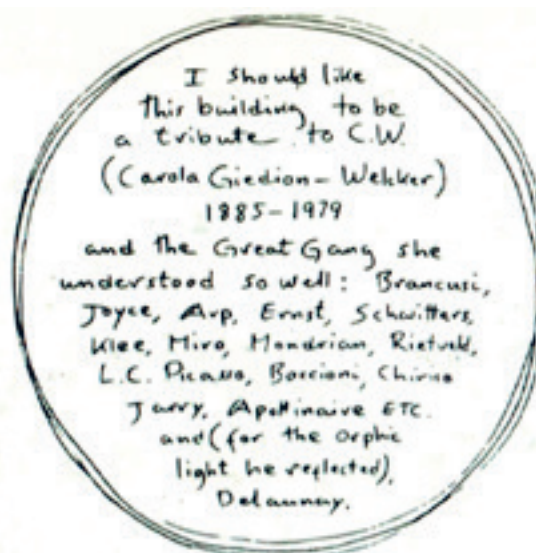 I should like
this building to be
a tribute to C.W.
(Carola Giedion-Welcker)
1885-1979
and the Great Gang she
understood so well: Brancusi,
Joyce, Arp, Ernst, Schwitters,
Klee, Miro, Mondrian, Rietveld,
L.C. Picasso, Boccioni, Chirico
Jarry, Apollinaire ETC.
and (for the orphic
light he reflected),
Delaunay.